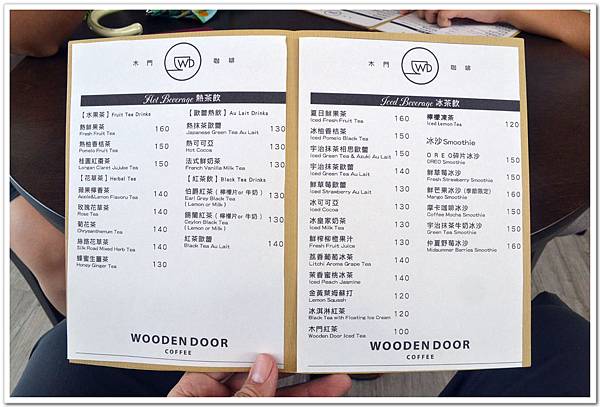 木門 WD 咖啡
Hot Beverage 熱茶飲
【水果茶】Fruit Tea Drinks
熱鮮果茶 160
Fresh Fruit Tea
熱柚香桔茶 150
Pomelo Fruit Tea
桂圓紅棗茶 150
Longan Claret Jujube Tea
【花草茶】Herbal Tea
蘋果檸香茶 140
Apple&Lemon Flavoru Tea
玫瑰花草茶 140
Rose Tea
菊花茶 140
Chrysanthemum Tea
絲路花草茶 140
Silk Road Mixed Herb Tea
蜂蜜生薑茶 130
Honey Ginger Tea
【歐蕾熱飲】Au Lait Drinks
熱抹茶歐蕾 130
Japanese Green Tea Au Lait
熱可可亞 130
Hot Cocoa
法式鮮奶茶 130
French Vanilla Milk Tea
【紅茶飲】Black Tea Drinks
伯爵紅茶（檸檬片or 牛奶） 130
Earl Grey Black Tea
(Lemon or Milk)
錫蘭紅茶（檸檬片or 牛奶） 130
Ceylon Black Tea
(Lemon or Milk)
紅茶歐蕾 140
Black Tea Au Lait
WOODEN DOOR
COFFEE
木門 WD 咖啡
Iced Beverage 冰茶飲
夏日鮮果茶 160
Iced Fresh Fruit Tea
冰柚香桔茶 150
Iced Pomelo Black Tea
宇治抹茶相思歐蕾 150
Iced Green Tea & Azuki Au Lait
宇治抹茶歐蕾 140
Iced Green Tea Au Lait
鮮草莓歐蕾 150
Iced Strawberry Au Lait
冰可可亞 130
Iced Cocoa
冰皇家奶茶 130
Iced Milk Tea
鮮榨柳橙果汁 130
Fresh Fruit Juice
荔香葡萄冰茶 140
Litchi Aroma Grape Tea
茉香蜜桃冰茶 140
Iced Peach Jasmine
金黃萊姆蘇打 120
Lemon Squash
冰淇淋紅茶 120
Black Tea with Floating Ice Cream
木門紅茶 100
Wooden Door Iced Tea
檸檬凍茶 120
Iced Lemon Tea
冰沙Smoothie
ＯＲＥＯ碎片冰沙 150
OREO Smoothie
鮮草莓冰沙 150
Fresh Strawberry Smoothie
鮮芒果冰沙（季節限定） 160
Mango Smoothie
摩卡咖啡冰沙 150
Coffee Mocha Smoothie
宇治抹茶牛奶冰沙 150
Green Tea Smoothie
仲夏野莓冰沙 160
Midsummer Berries Smoothie
WOODEN DOOR
COFFEE